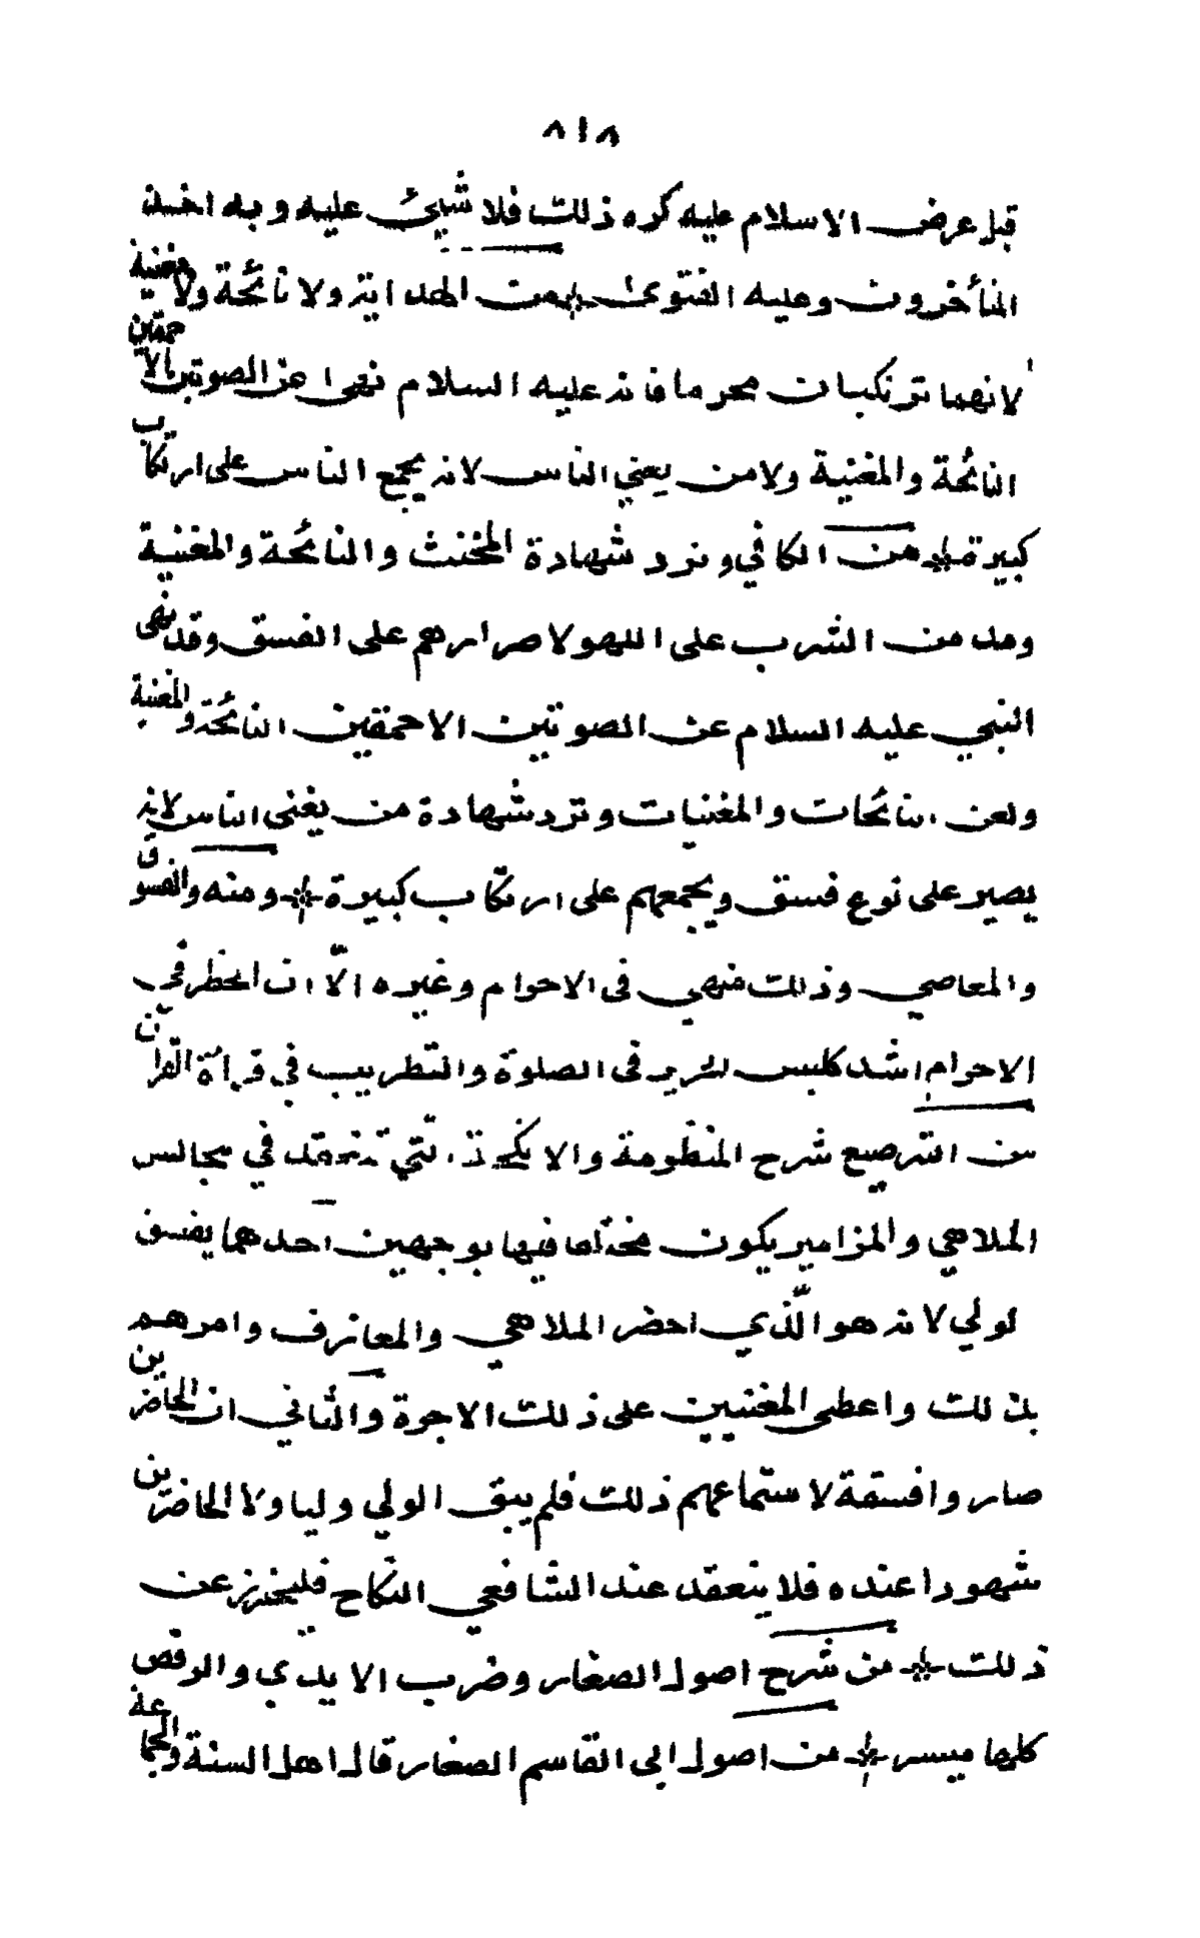 ٨١٨
قبل عرض الاسلام عليه كره ذلك فلا شيئ عليه وبه اخذ
المتأخرون وعليه الفتوى * من الهداية ولا نائحة ولا مغنية
لانهما ترتكبان محرما فانه عليه السلام نهى عن الصوتين الاحمقين
النائحة والمغنية ولا من يغني الناس لانه يجمع الناس على ارتكاب
كبيرة * من الكافي وترد شهادة المخنث والنائحة والمغنية
ومدمن الشرب على اللهو لاصرارهم على الفسق وقد نهى
النبي عليه السلام عن الصوتين الاحمقين النائحة والمغنية
ولعن النائحات والمغنيات وترد شهادة من يغنى الناس لانه
يصير على نوع فسق ويجمعهم على ارتكاب كبيرة * ومنه والفسوق
والمعاصي وذلك منهي فى الاحرام وغيره الّا ان الحظر فى
الاحرام اشد كلبس الحرير فى الصلوة والتطريب في قراءة القرآن
من الترصيع شرح المنظومة والانكحة التي تنعقد في مجالس
الملاهي والمزامير يكون مختلفا فيها بوجهين احدهما يفسق
لولي لانه هو الّذي احضر الملاهي والمعازف وامرهم
بذلك واعطى المغنيين على ذلك الاجرة والثاني ان الحاضرين
صاروا فسقة لاستماعهم ذلك فلم يبق الولي وليا ولا الحاضرين
شهودا عنده فلا ينعقد عند الشافعي النكاح فليحترز عن
ذلك * من شرح اصول الصفار وضرب الايدي والرقص
كلها ميسر * من اصول ابى القاسم الصفار قال اهل السنة والجماعة